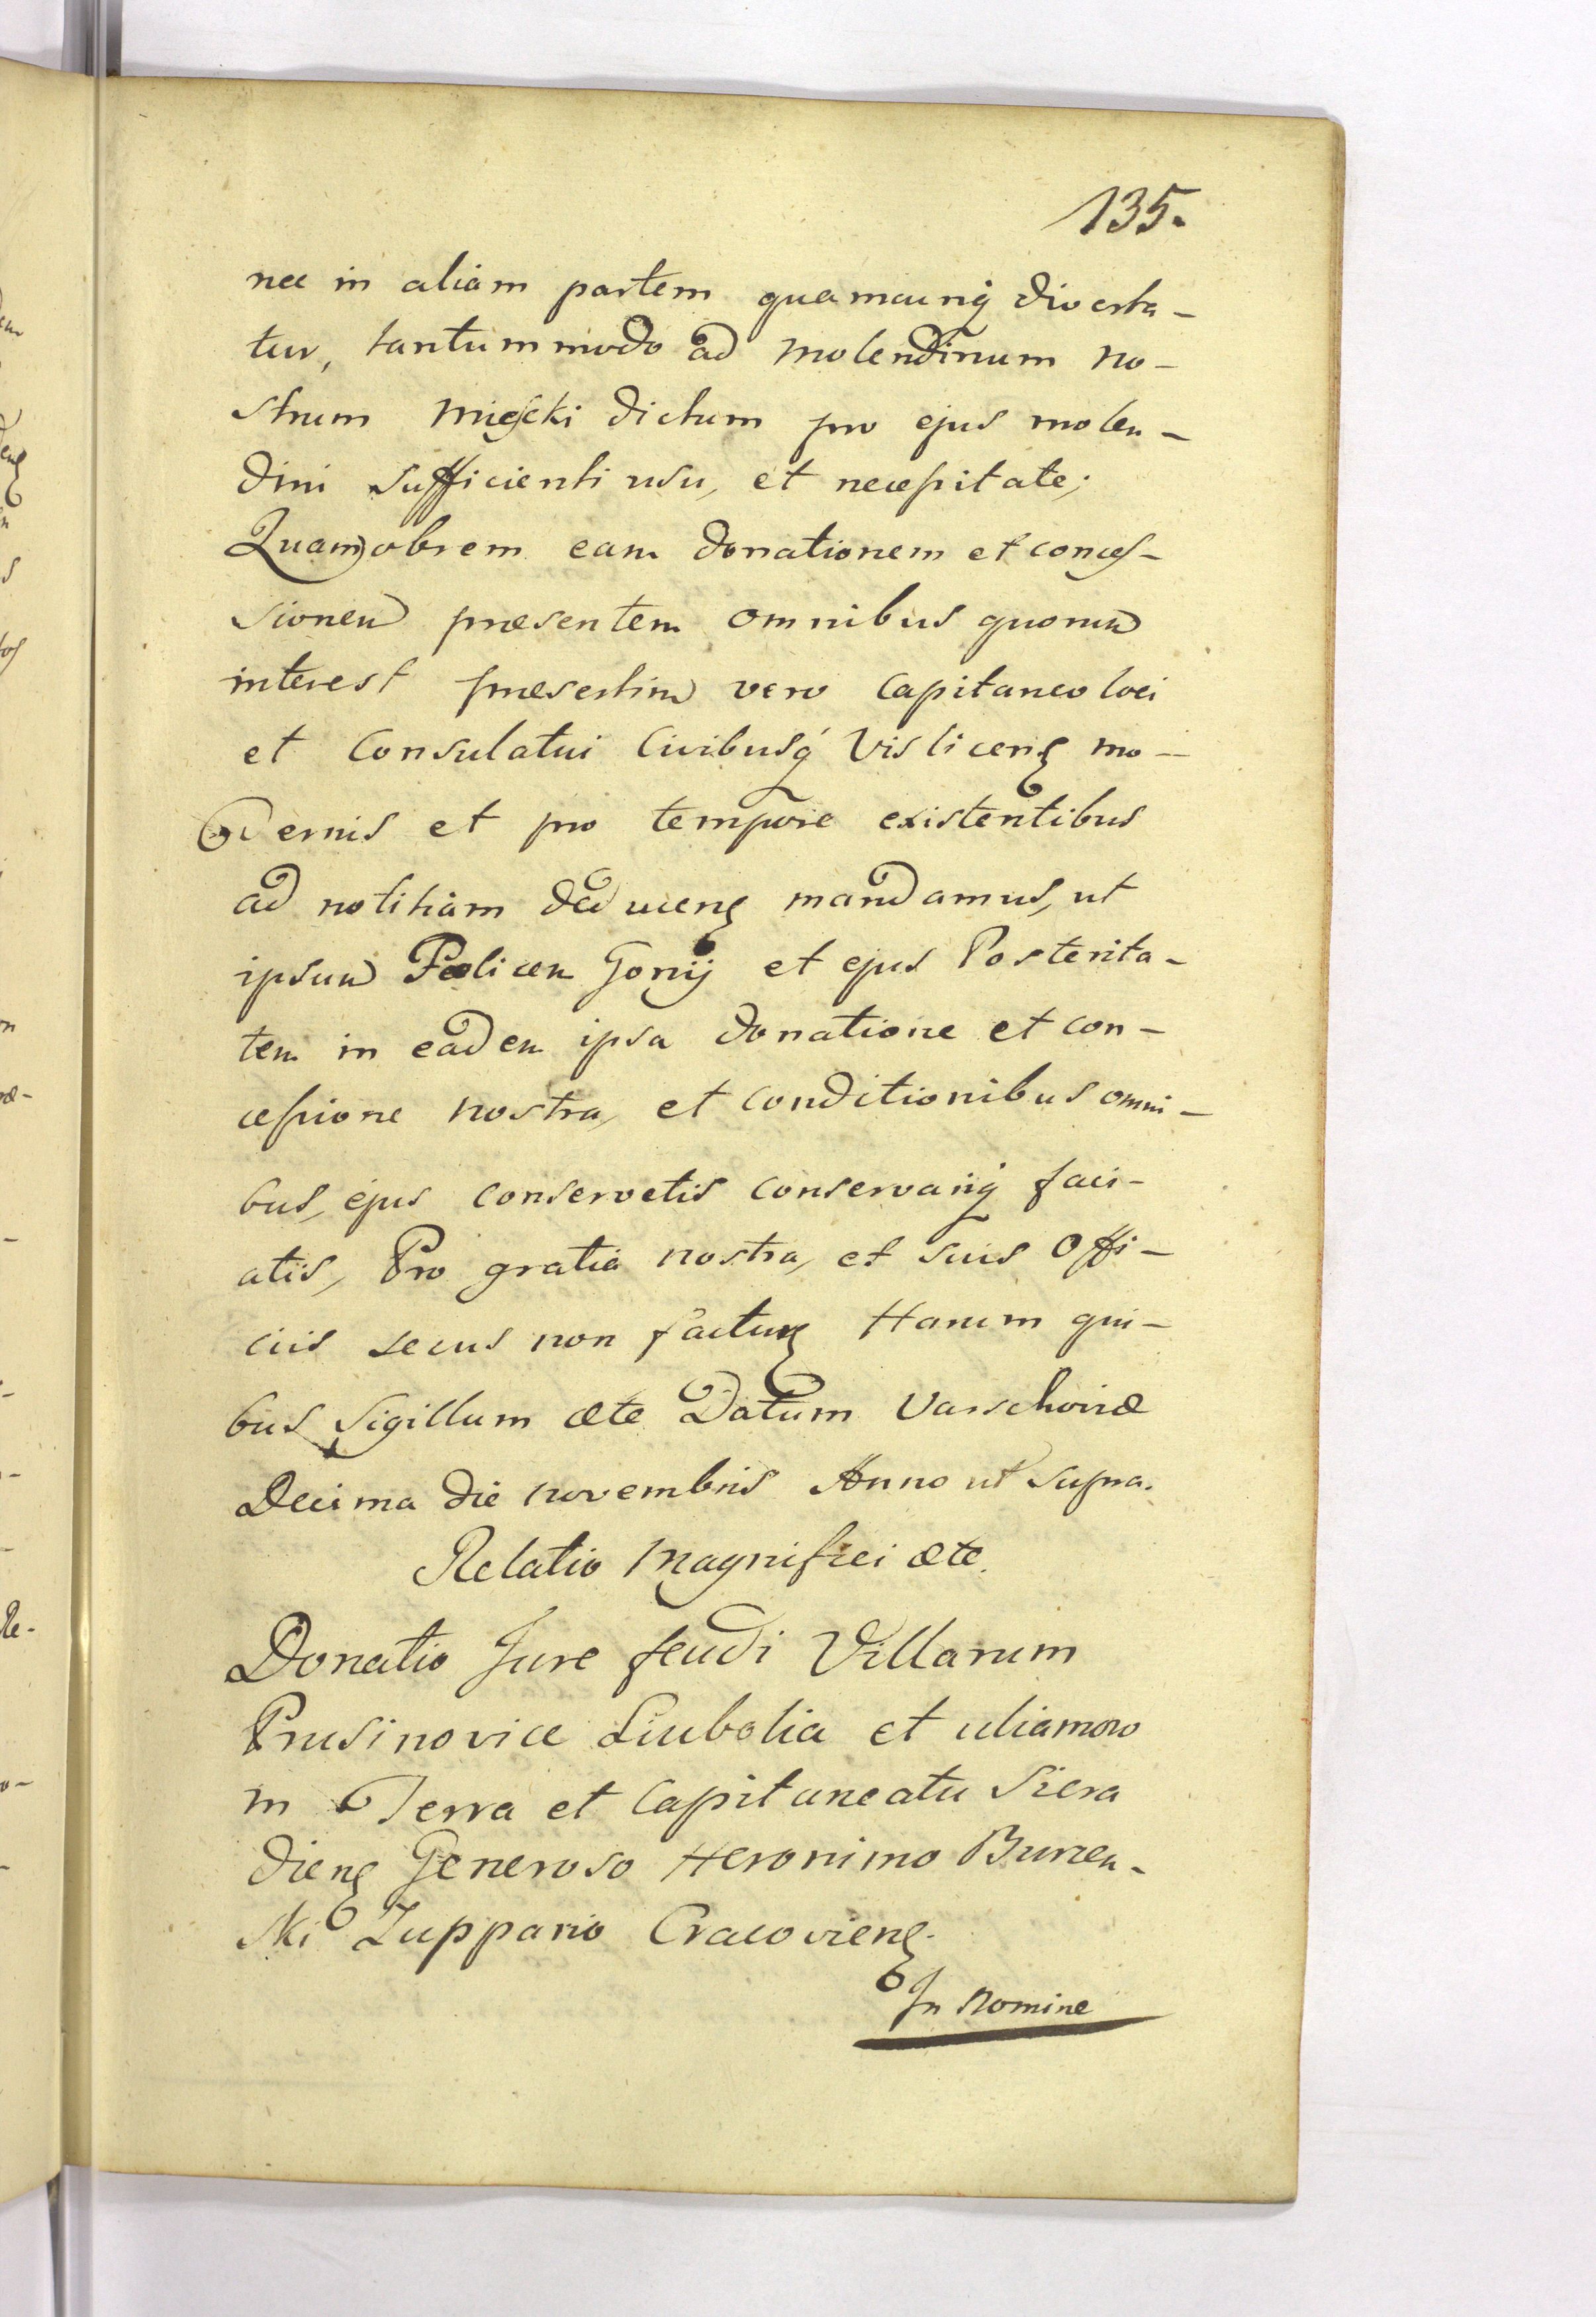 135.
nec in aliam partem quamcunq́ diverta-
tur, tantummodo ad molendinum no-
strum Miescki dictum pro ejus molen-
dini sufficienti usu, et necessitate;
Quamobrem eam donationem et conces-
sionem præsentem omnibus quorum
interest præsertim vero Capitaneo loci
et Consulatui Civibusq́ Vislicenę mo-
dernis et pro tempore existentibus
ad notitiam deducenę mandamus, ut
ipsum Felicem Gorÿ et ejus Posterita-
tem in eadem ipsa donatione et con-
cessione nostra, et conditionibus omni-
bus, ejus conservetis conservariq́ faci-
atis, Pro gratia nostra, et suis Offi-
ciis secus non facturę Harum qui-
bus Sigillum &te Datum Varschoviæ
Decima die novembris Anno ut supra.
Relatio Magnifici &te.
Donatio Jure feudi Villarum
Prusinovice Liubolia et uliamow
in Terra et Capitaneatu Siera
dienę Generoso Heronimo Buzen-
ski Zuppario Cracovienę.
In Nomine